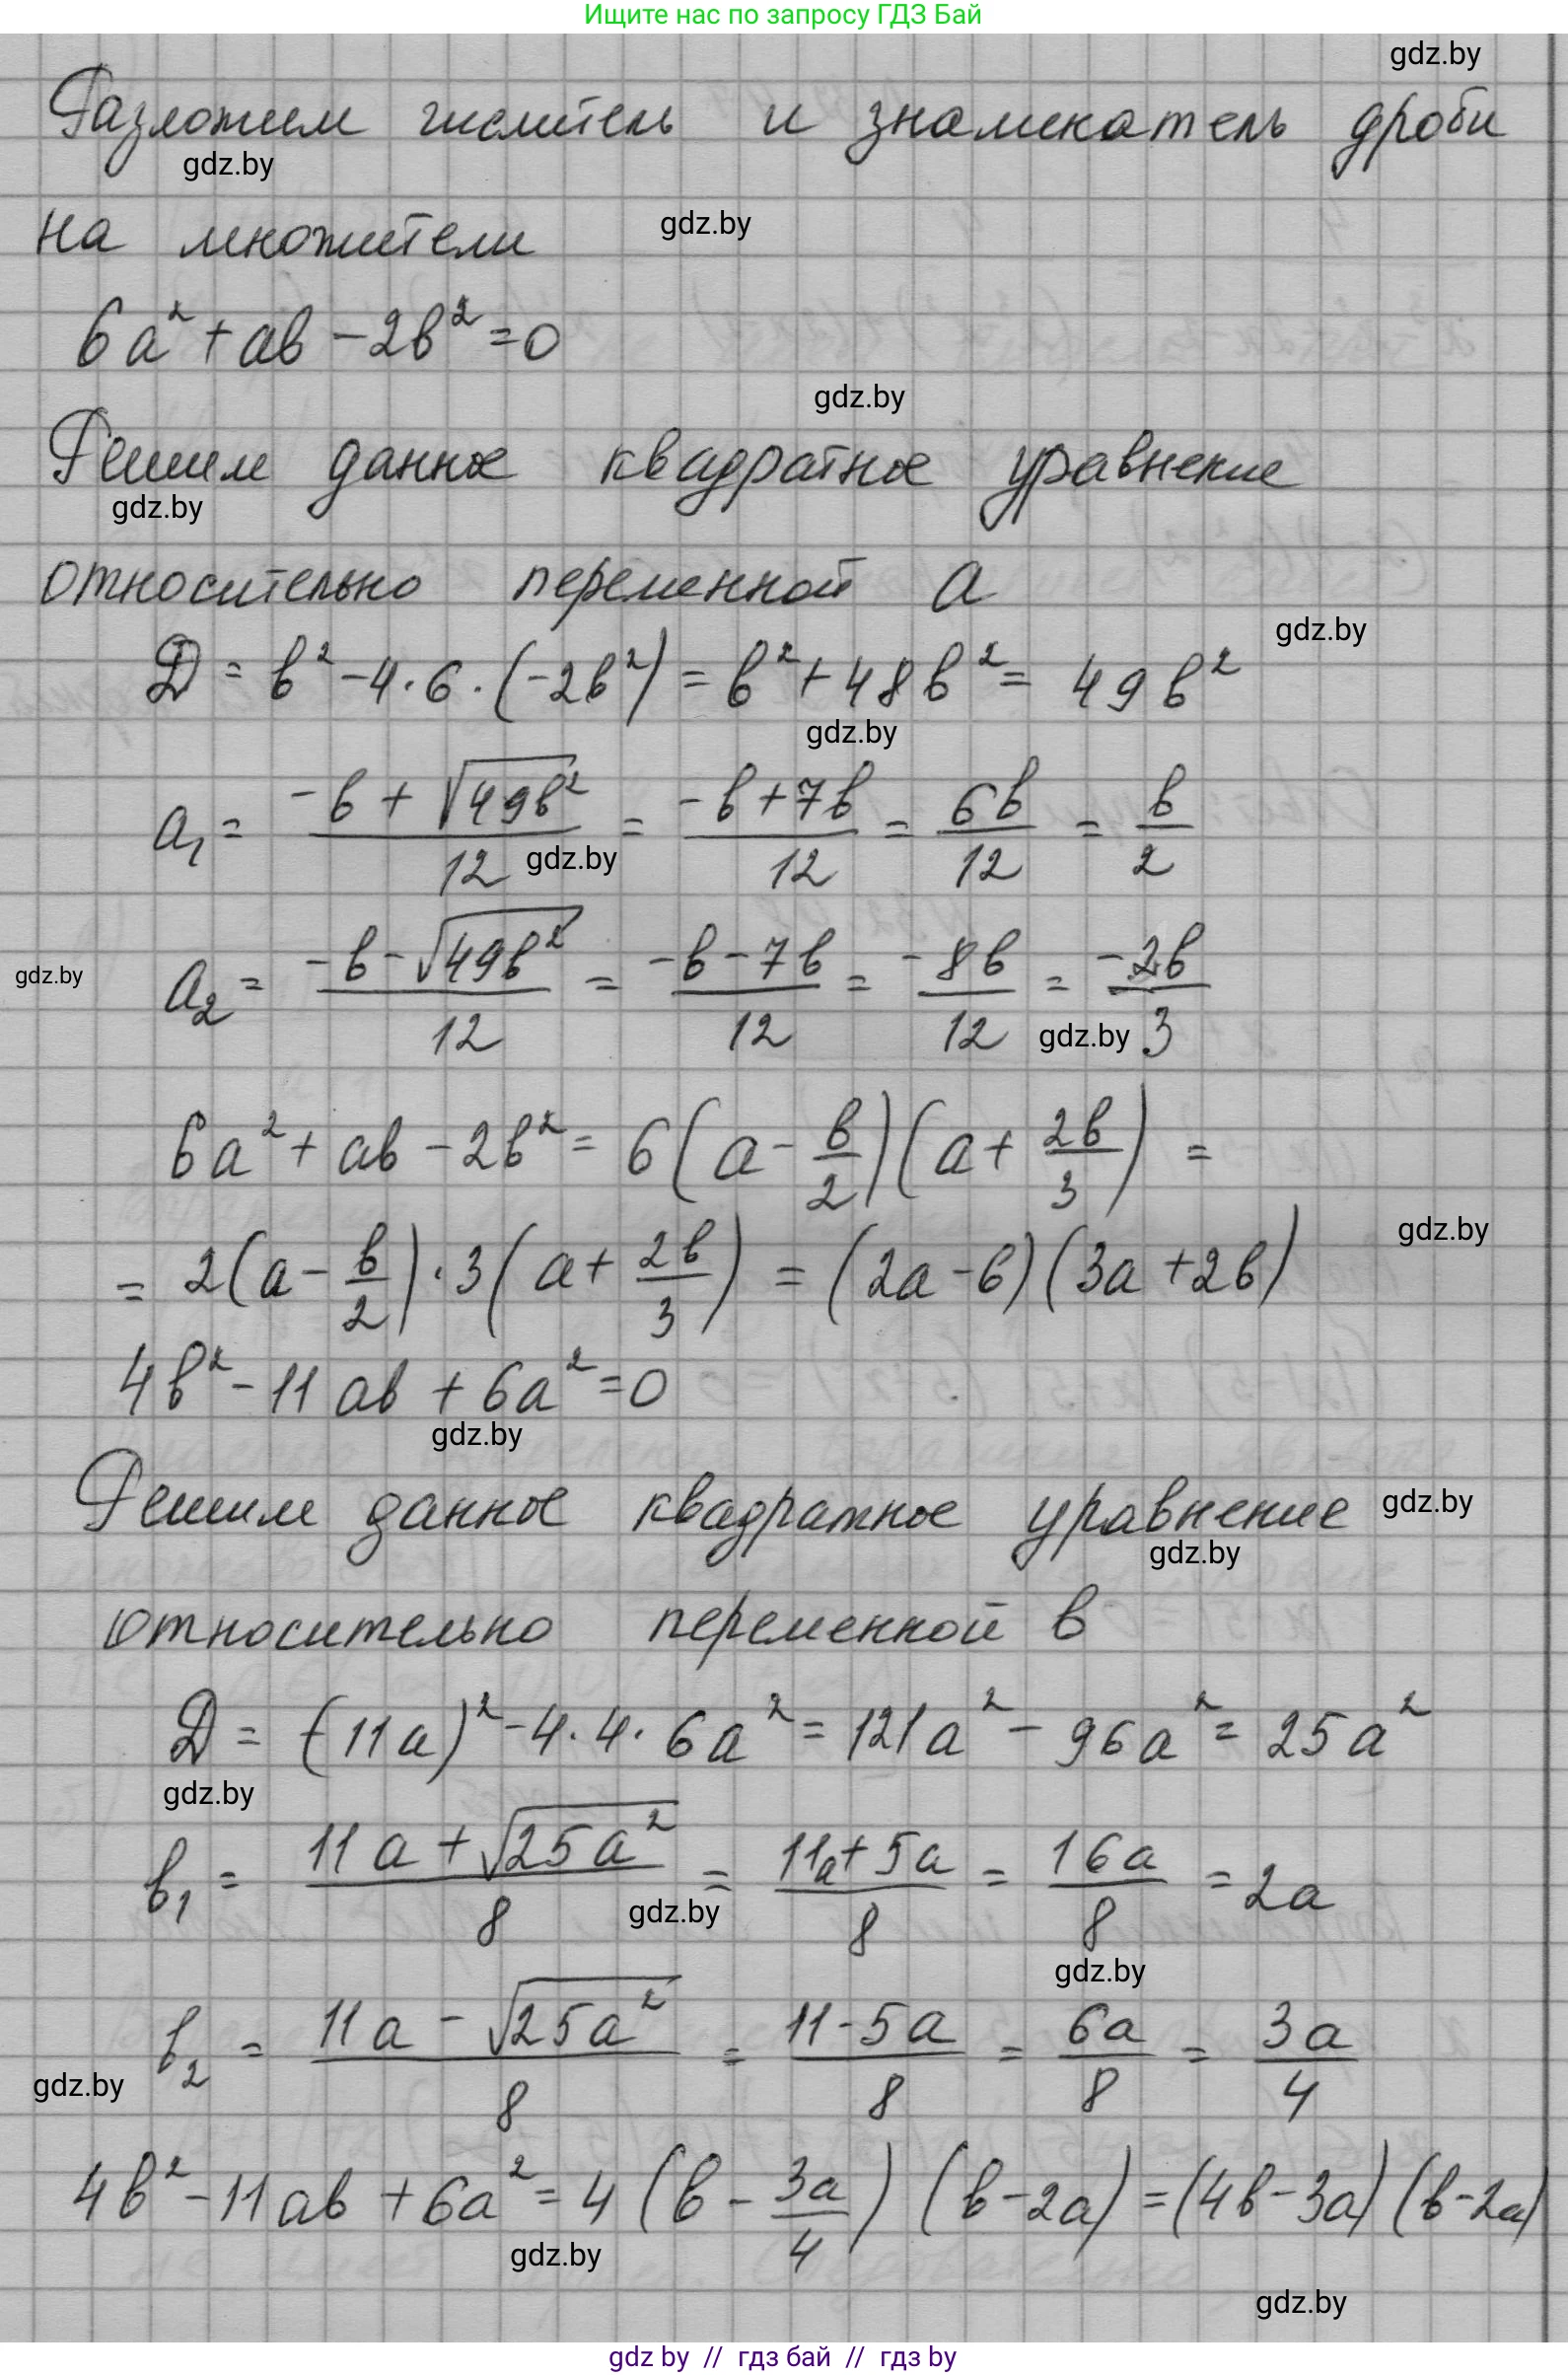 Ищите нас по запросу ГДЗ Бай
gdz.by
Разложим числитель и знаменатель дроби
gdz.by
на множители
gdz.by
6a² + ab − 2b² = 0
gdz.by
Решим данное квадратное уравнение
gdz.by
относительно переменной a
gdz.by
D = b² − 4 · 6 · (−2b²) = b² + 48b² = 49b²
gdz.by
a₁ = (−b + √(49b²))/12 = (−b + 7b)/12 = 6b/12 = b/2
gdz.by
a₂ = (−b − √(49b²))/12 = (−b − 7b)/12 = −8b/12 = −2b/3
gdz.by
gdz.by
6a² + ab − 2b² = 6(a − b/2)(a + 2b/3) =
gdz.by
= 2(a − b/2) · 3(a + 2b/3) = (2a − b)(3a + 2b)
4b² − 11ab + 6a² = 0
gdz.by
Решим данное квадратное уравнение
gdz.by
gdz.by
относительно переменной b
D = (−11a)² − 4 · 4 · 6a² = 121a² − 96a² = 25a²
gdz.by
b₁ = (11a + √(25a²))/8 = (11a + 5a)/8 = 16a/8 = 2a
gdz.by
gdz.by
b₂ = (11a − √(25a²))/8 = (11 − 5a)/8 = 6a/8 = 3a/4
gdz.by
4b² − 11ab + 6a² = 4(b − 3a/4)(b − 2a) = (4b − 3a)(b − 2a)
gdz.by
gdz.by
gdz by // гдз бай // гдз by